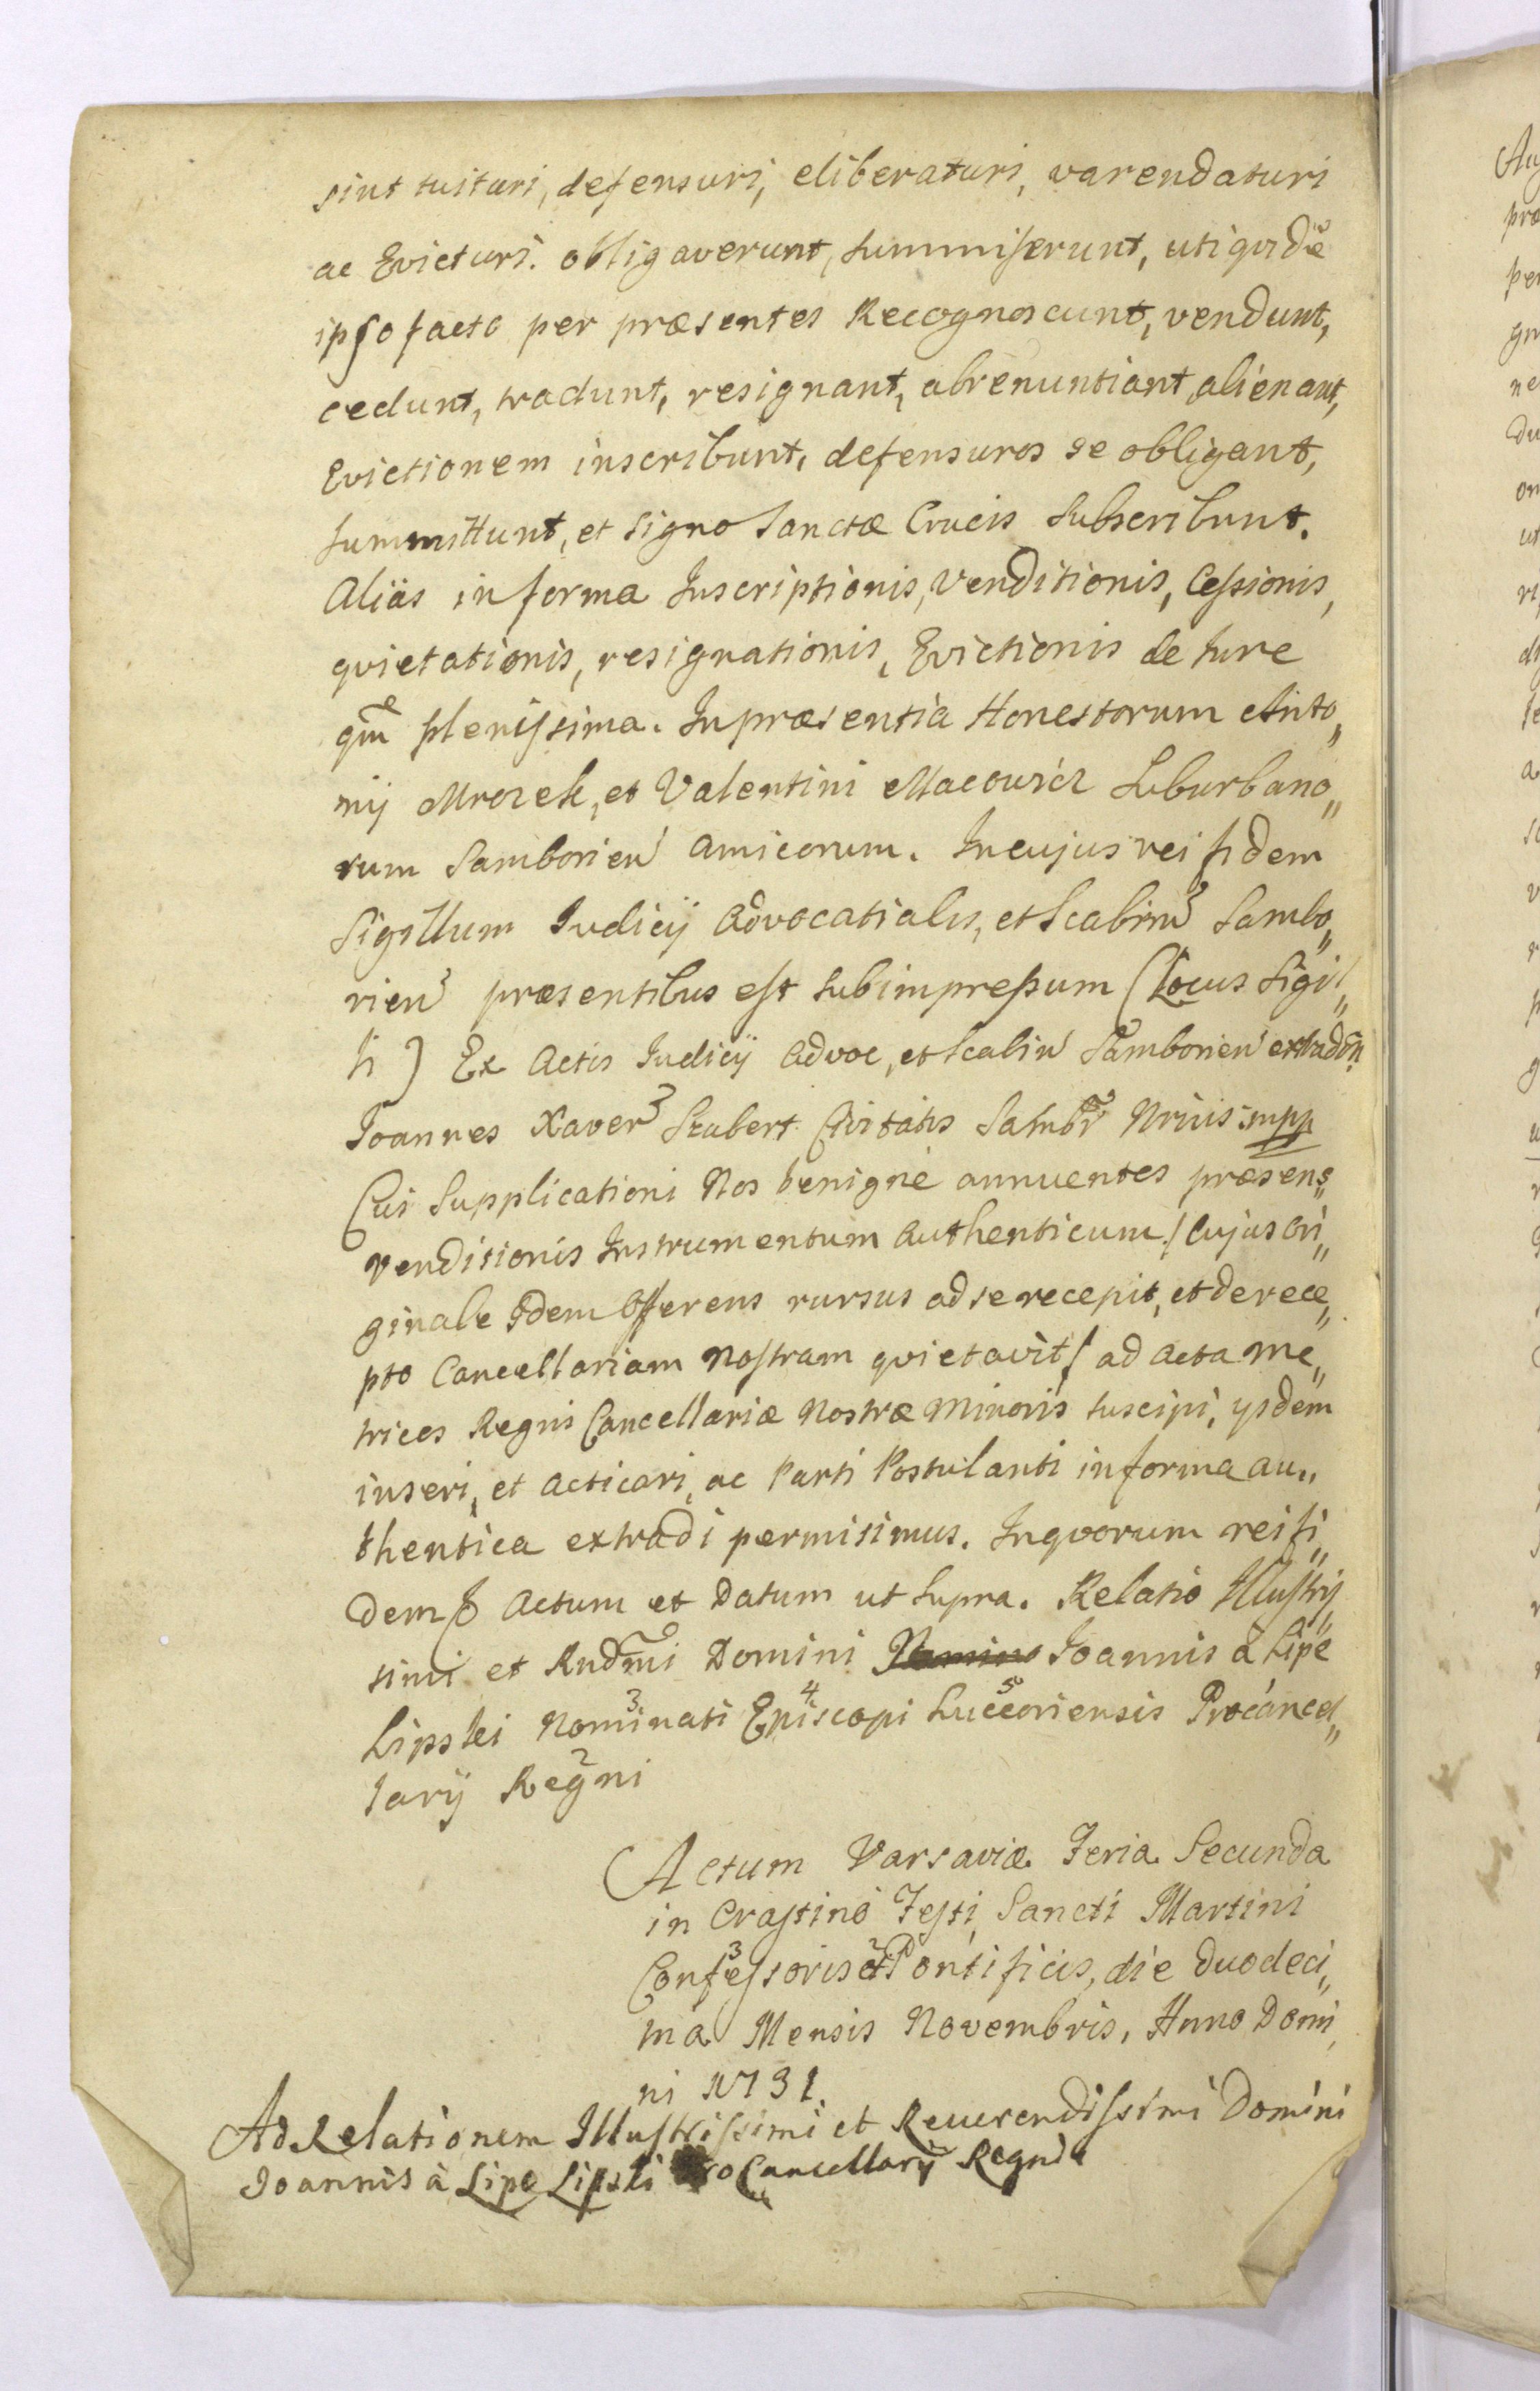 sint tuituri, defensuri, eliberaturi, varendaturi
ac Evicturi. obligaverunt, summiserunt, uti qvidē
ipso facto per præsentes Recognoscunt, vendunt,
cedunt, tradunt, resignant, abrenuntiant, alienant,
Evictionem inscribunt, defensuros se obligant,
summittunt, et signo Sanctæ Crucis Subscribunt.
Aliàs in forma Inscriptionis, Venditionis, Cessionis,
qvietationis, resignationis, Evictionis de Iure
qm̃ plenissima. In præsentia Honestorum Anto„
nij Mrozek, et Valentini Macowicz Suburbano„
rum Samborien amicorum. In cujus rei fidem
Sigillum Iudicij Advocatialis, et Scabin Sambo„
rien præsentibus est subimpressum (Locus Sigil„
li) Ex Actis Iudicij Advoc, et Scabin Samborien extradõn
Joannes Xaver Szubert Civitatis Sambr̃ Nrius mpp
Cui Supplicationi Nos benignè annuentes præsens„
venditionis Instrumentum Authenticum / Cujus Ori„
ginale Idem Offerens rursus ad se recepit, et de rece„
pto Cancellariam Nostram qvietavit / ad Acta Me„
trices Regni Cancellariæ Nostræ Minoris suscipi, ijsdem
inseri, et acticari, ac Parti Postulanti in forma au„
thentica extradi permisimus. In qvorum rei fi„
dem Actum et Datum ut supra. Relatio Illustris„
simi et Rndm̃i Domini Joannis à Lipe
Lipski Nominati 3 Episcopi 4 Lucceoriensis 5 Procancel„
larij Regni 2
Actum Varsaviæ Feria Secunda
in Crastino Festi Sancti Martini
Confessoris 3 et 2 Pontificis, die duodeci„
ma Mensis Novembris, Anno Domi„
ni 1731.
Ad Relationem Illustrissimi et Reuerendissimi Domini
Joannis à Lipe Lipski ProCancellarij Regni